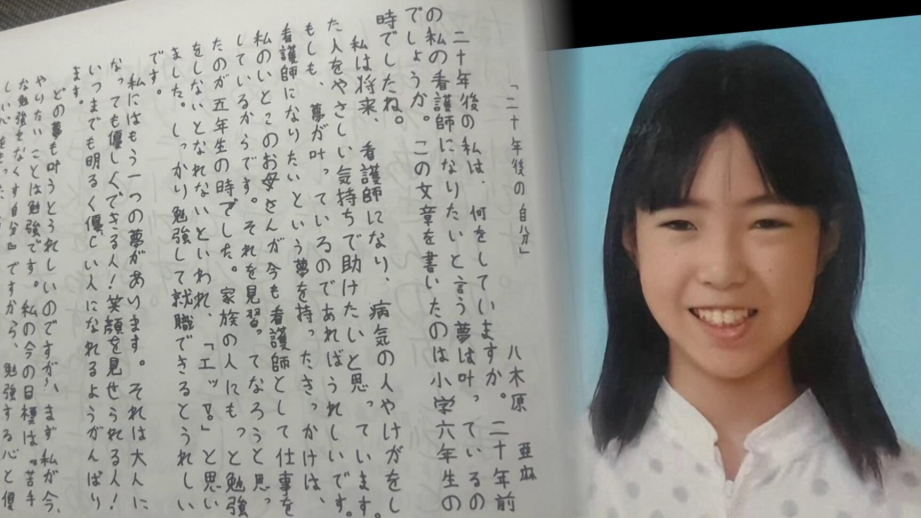 「二十年後の自分」
八木原 亜麻
二十年後の私は、何をしていますか。二十年前
の私の看護師になりたいと言う夢は叶っているの
でしょうか。この文章を書いたのは小学六年生の
時でしたね。
私は将来、看護師になり、病気の人やけがをし
た人をやさしい気持ちで助けたいと思っています。
もしも、夢が叶っているのであればうれしいです。
看護師になりたいという夢を持ったきっかけは、
私のいとこのお母さんが今も看護師として仕事を
しているからです。それを見習ってなろうと思っ
たのが五年生の時でした。家族の人にもっと勉強
をしないとなれないといわれ、「エッ!!」と思い
ました。しっかり勉強して就職できるとうれしい
です。
私にはもう一つの夢があります。それは大人に
なっても優しくできる人!笑顔を見せられる人!
いつまでも明るく優しい人になれるようがんばり
ます。
どの夢も叶うとうれしいのですが、まず私が今、
やりたいことは勉強です。私の今の目標は『苦手
な勉強をなくす自分』ですから、勉強する心と優
しい心をもった